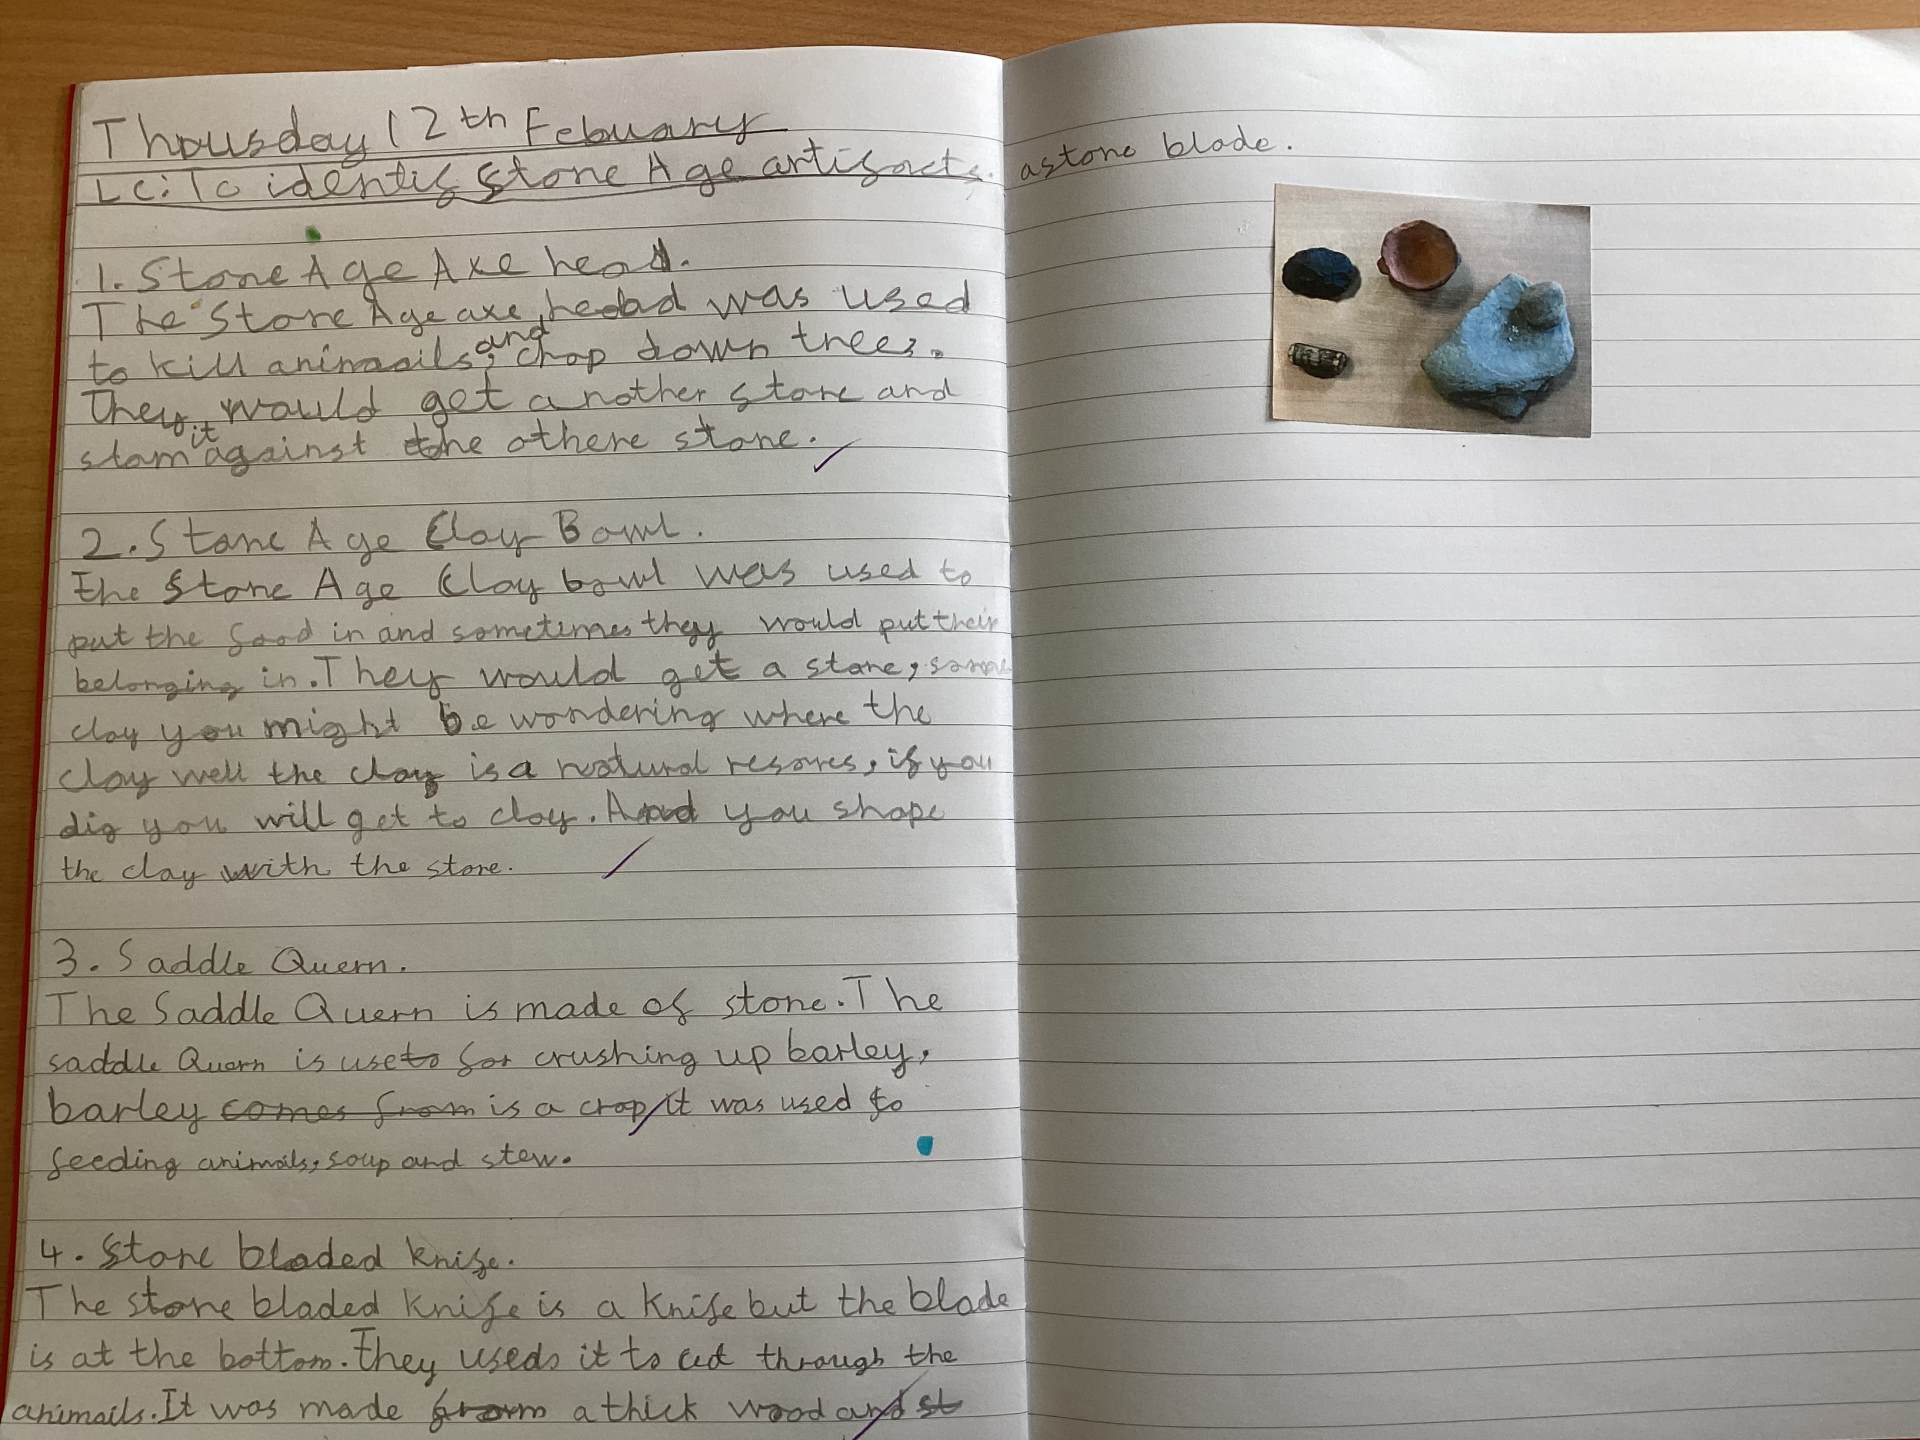 Thoursday 12th Febuary
LC: To identif Stone Age artifacts.
1. Stone Age Axe head.
The Stone Age axe head was used
to kill animails, and chop down trees.
They would get another stone and
slam it against the othere stone.
2. Stone Age Clay Bowl.
The Stone Age Clay bowl was used to
put the food in and sometimes they would put their
belonging in. They would get a stone, some
clay you might be wondering where the
clay well the clay is a natural resores, if you
dig you will get to clay. And you shape
the clay with the stone.
3. Saddle Quern.
The Saddle Quern is made of stone. The
saddle Quern is use to for crushing up barley,
barley comes from is a crop it was used fo
feeding animals, soup and stew.
4. Stone bladed knife.
The stone bladed knife is a knife but the blade
is at the bottom. They useds it to cut through the
animails. It was made from a thick wood and st
a stone blade.